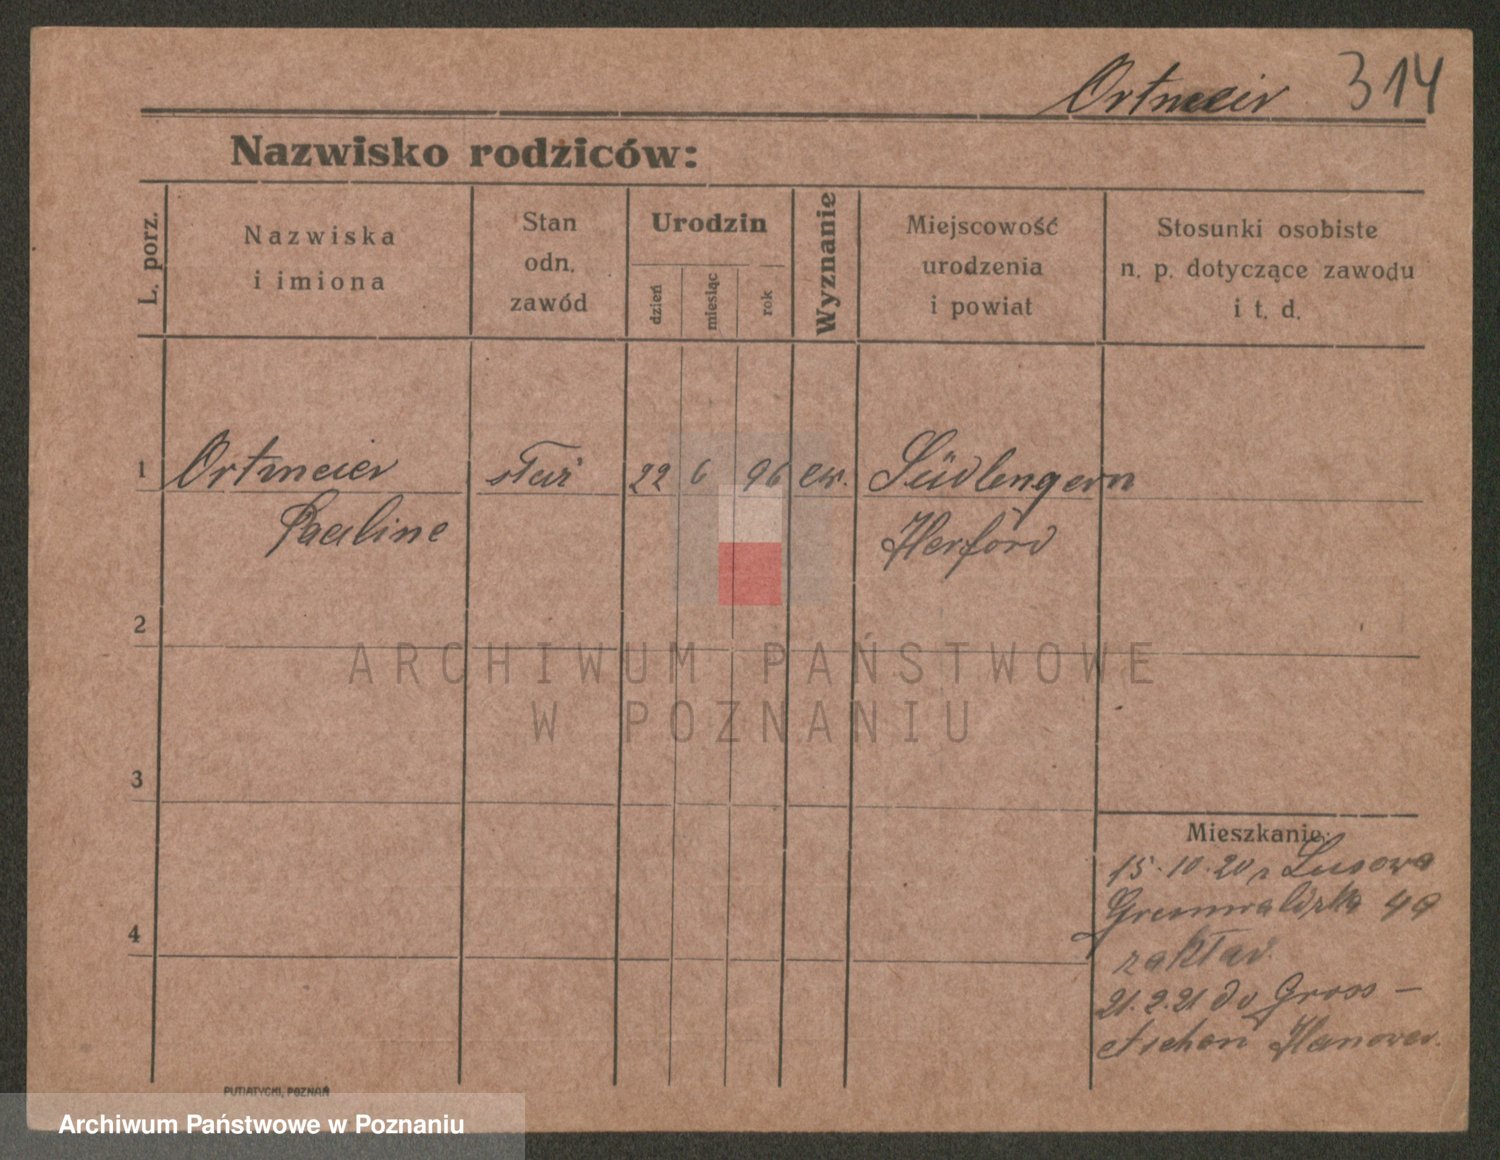 Ortmeier 314
Nazwisko rodziców:
L. porz.
Nazwiska
i imiona
Stan
odn.
zawód
Urodzin
dzień
miesiąc
rok
Wyznanie
Miejscowość
urodzenia
i powiat
Stosunki osobiste
n. p. dotyczące zawodu
i t. d.
1 Ortmeier 22 6 96 ew. Südlengern
Pauline Herford
2
ARCHIWUM PAŃSTWOWE
W POZNANIU
3
Mieszkanie:
15.10.20 z Lusowa
4
zakład.
21.2.21 do Gross-
Aschen Hanower.
PUTIATYCKI, POZNAŃ
Archiwum Państwowe w Poznaniu